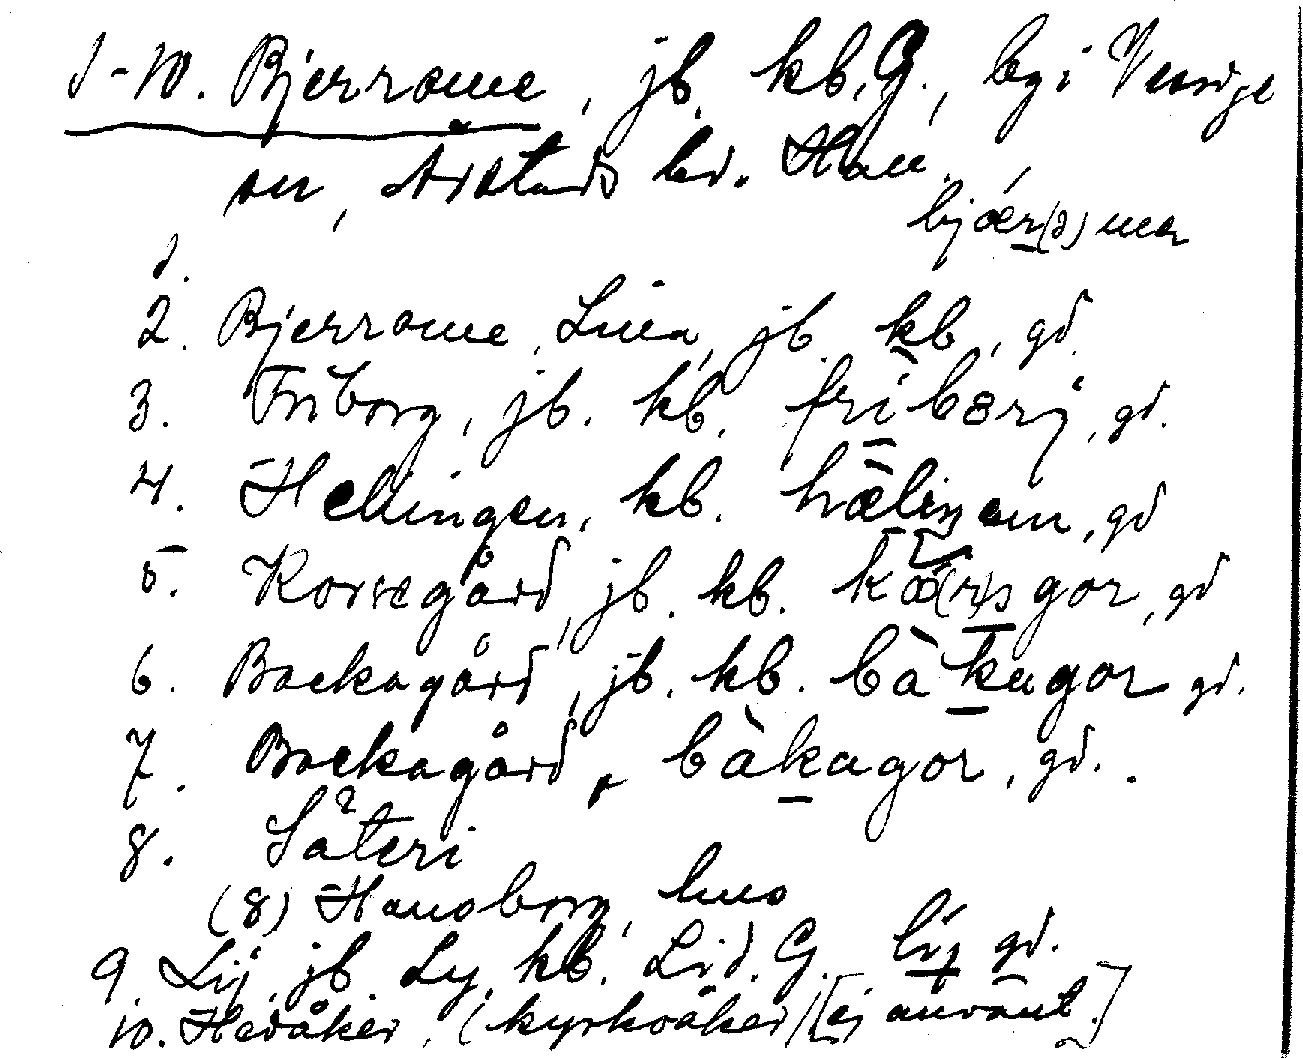 1-10. Bjerrome, jb. kb. G., by i Vessige
sn, Årstads hd. Hall.
bjær(ə)mer
1.
2. Bjerrome, Lilla, jb. kb., gd.
3. Friborg, jb. kb. frìbɔrj, gd.
4. Hellingen, kb. hæliŋen, gd
5. Korsegård, jb. kb. gor, gd
6. Backagård, jb. kb. bàkagor gd.
7. Backagård, bàkagor, gd.
8. Såteri
(8) Hansborg, hus
9. Lij jb. Ly, kb. Lid. G. gd.
10. Hedåker, (kyrkoåker) [ej använt.]